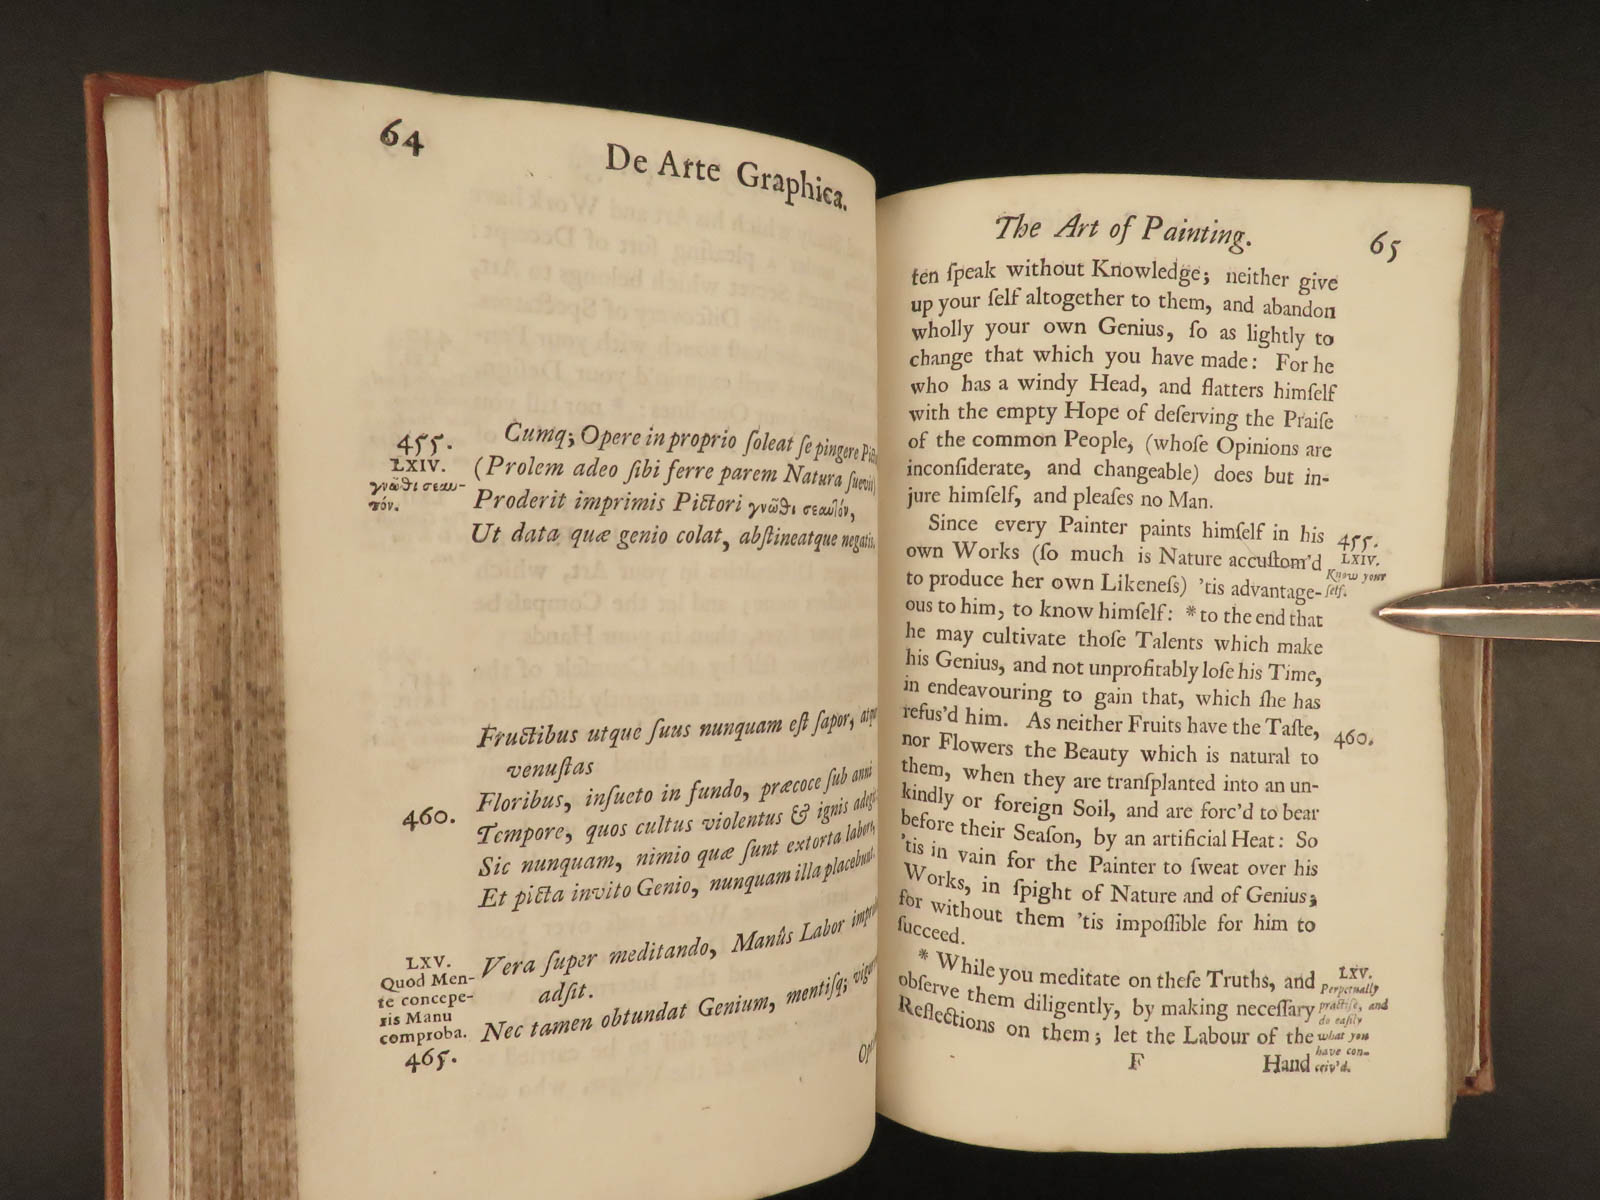 64
De Arte Graphica.
455.
LXIV.
γνῶθι σεαυ-
τόν.
Cumq; Opere in proprio ſoleat ſe pingere
(Prolem adeo ſibi ferre parem Natura ſuevit)
Proderit imprimis Pictori γνῶθι σεαυτόν,
Ut data quæ genio colat, abſtineatque negatis.
Fructibus utque ſuus nunquam eſt ſapor,
venuſtas
Floribus, inſueto in fundo, præcoce ſub anni
460.
Tempore, quos cultus violentus & ignis
Sic nunquam, nimio quæ ſunt extorta labore,
Et picta invito Genio, nunquam illa placebunt.
LXV.
Quod Men-
te concepe-
ris Manu
comproba.
465.
Vera ſuper meditando, Manûs Labor
adſit.
Nec tamen obtundat Genium, mentiſq;
The Art of Painting.
65
ten ſpeak without Knowledge; neither give
up your ſelf altogether to them, and abandon
wholly your own Genius, ſo as lightly to
change that which you have made: For he
who has a windy Head, and flatters himſelf
with the empty Hope of deſerving the Praiſe
of the common People, (whoſe Opinions are
inconſiderate, and changeable) does but in-
jure himſelf, and pleaſes no Man.
Since every Painter paints himſelf in his
own Works (ſo much is Nature accuſtom'd
to produce her own Likeneſs) 'tis advantage-
ous to him, to know himſelf: * to the end that
he may cultivate thoſe Talents which make
his Genius, and not unprofitably loſe his Time,
in endeavouring to gain that, which ſhe has
refus'd him. As neither Fruits have the Taſte,
nor Flowers the Beauty which is natural to
them, when they are tranſplanted into an un-
kindly or foreign Soil, and are forc'd to bear
before their Seaſon, by an artificial Heat: So
'tis in vain for the Painter to ſweat over his
Works, in ſpight of Nature and of Genius;
for without them 'tis impoſſible for him to
ſucceed.
* While you meditate on theſe Truths, and
obſerve them diligently, by making neceſſary
Reflections on them; let the Labour of the
F
Hand
455.
LXIV.
Know your
ſelf.
460.
LXV.
Perpetually
practiſe, and
do eaſily
what you
have con-
ceiv'd.